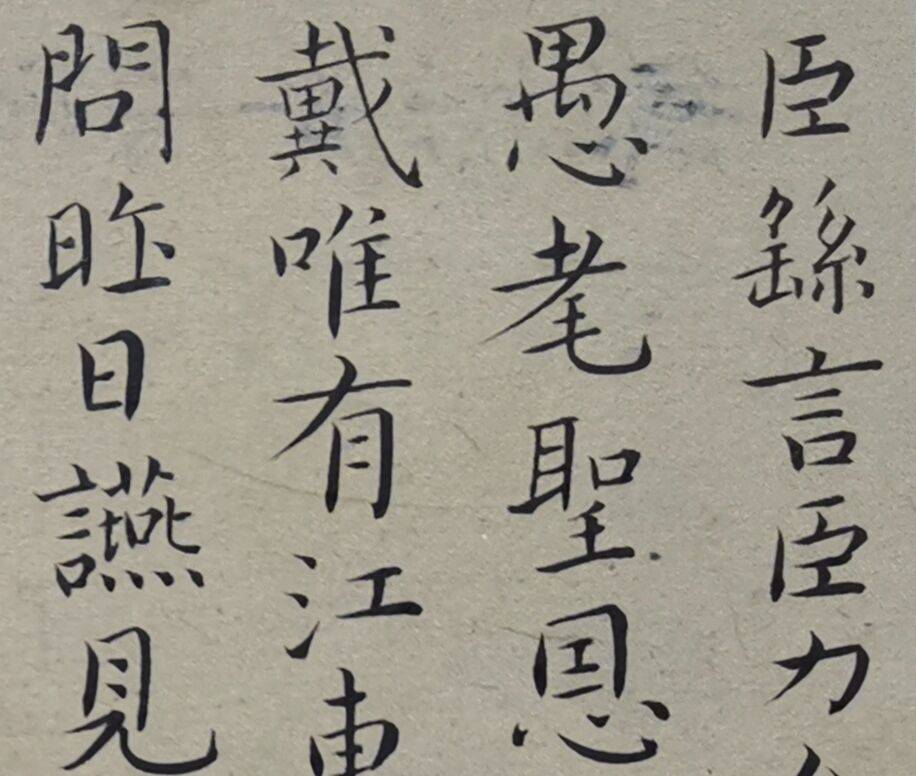 臣繇言臣力
愚耄聖恩
戴唯有江東
問昨日讌見